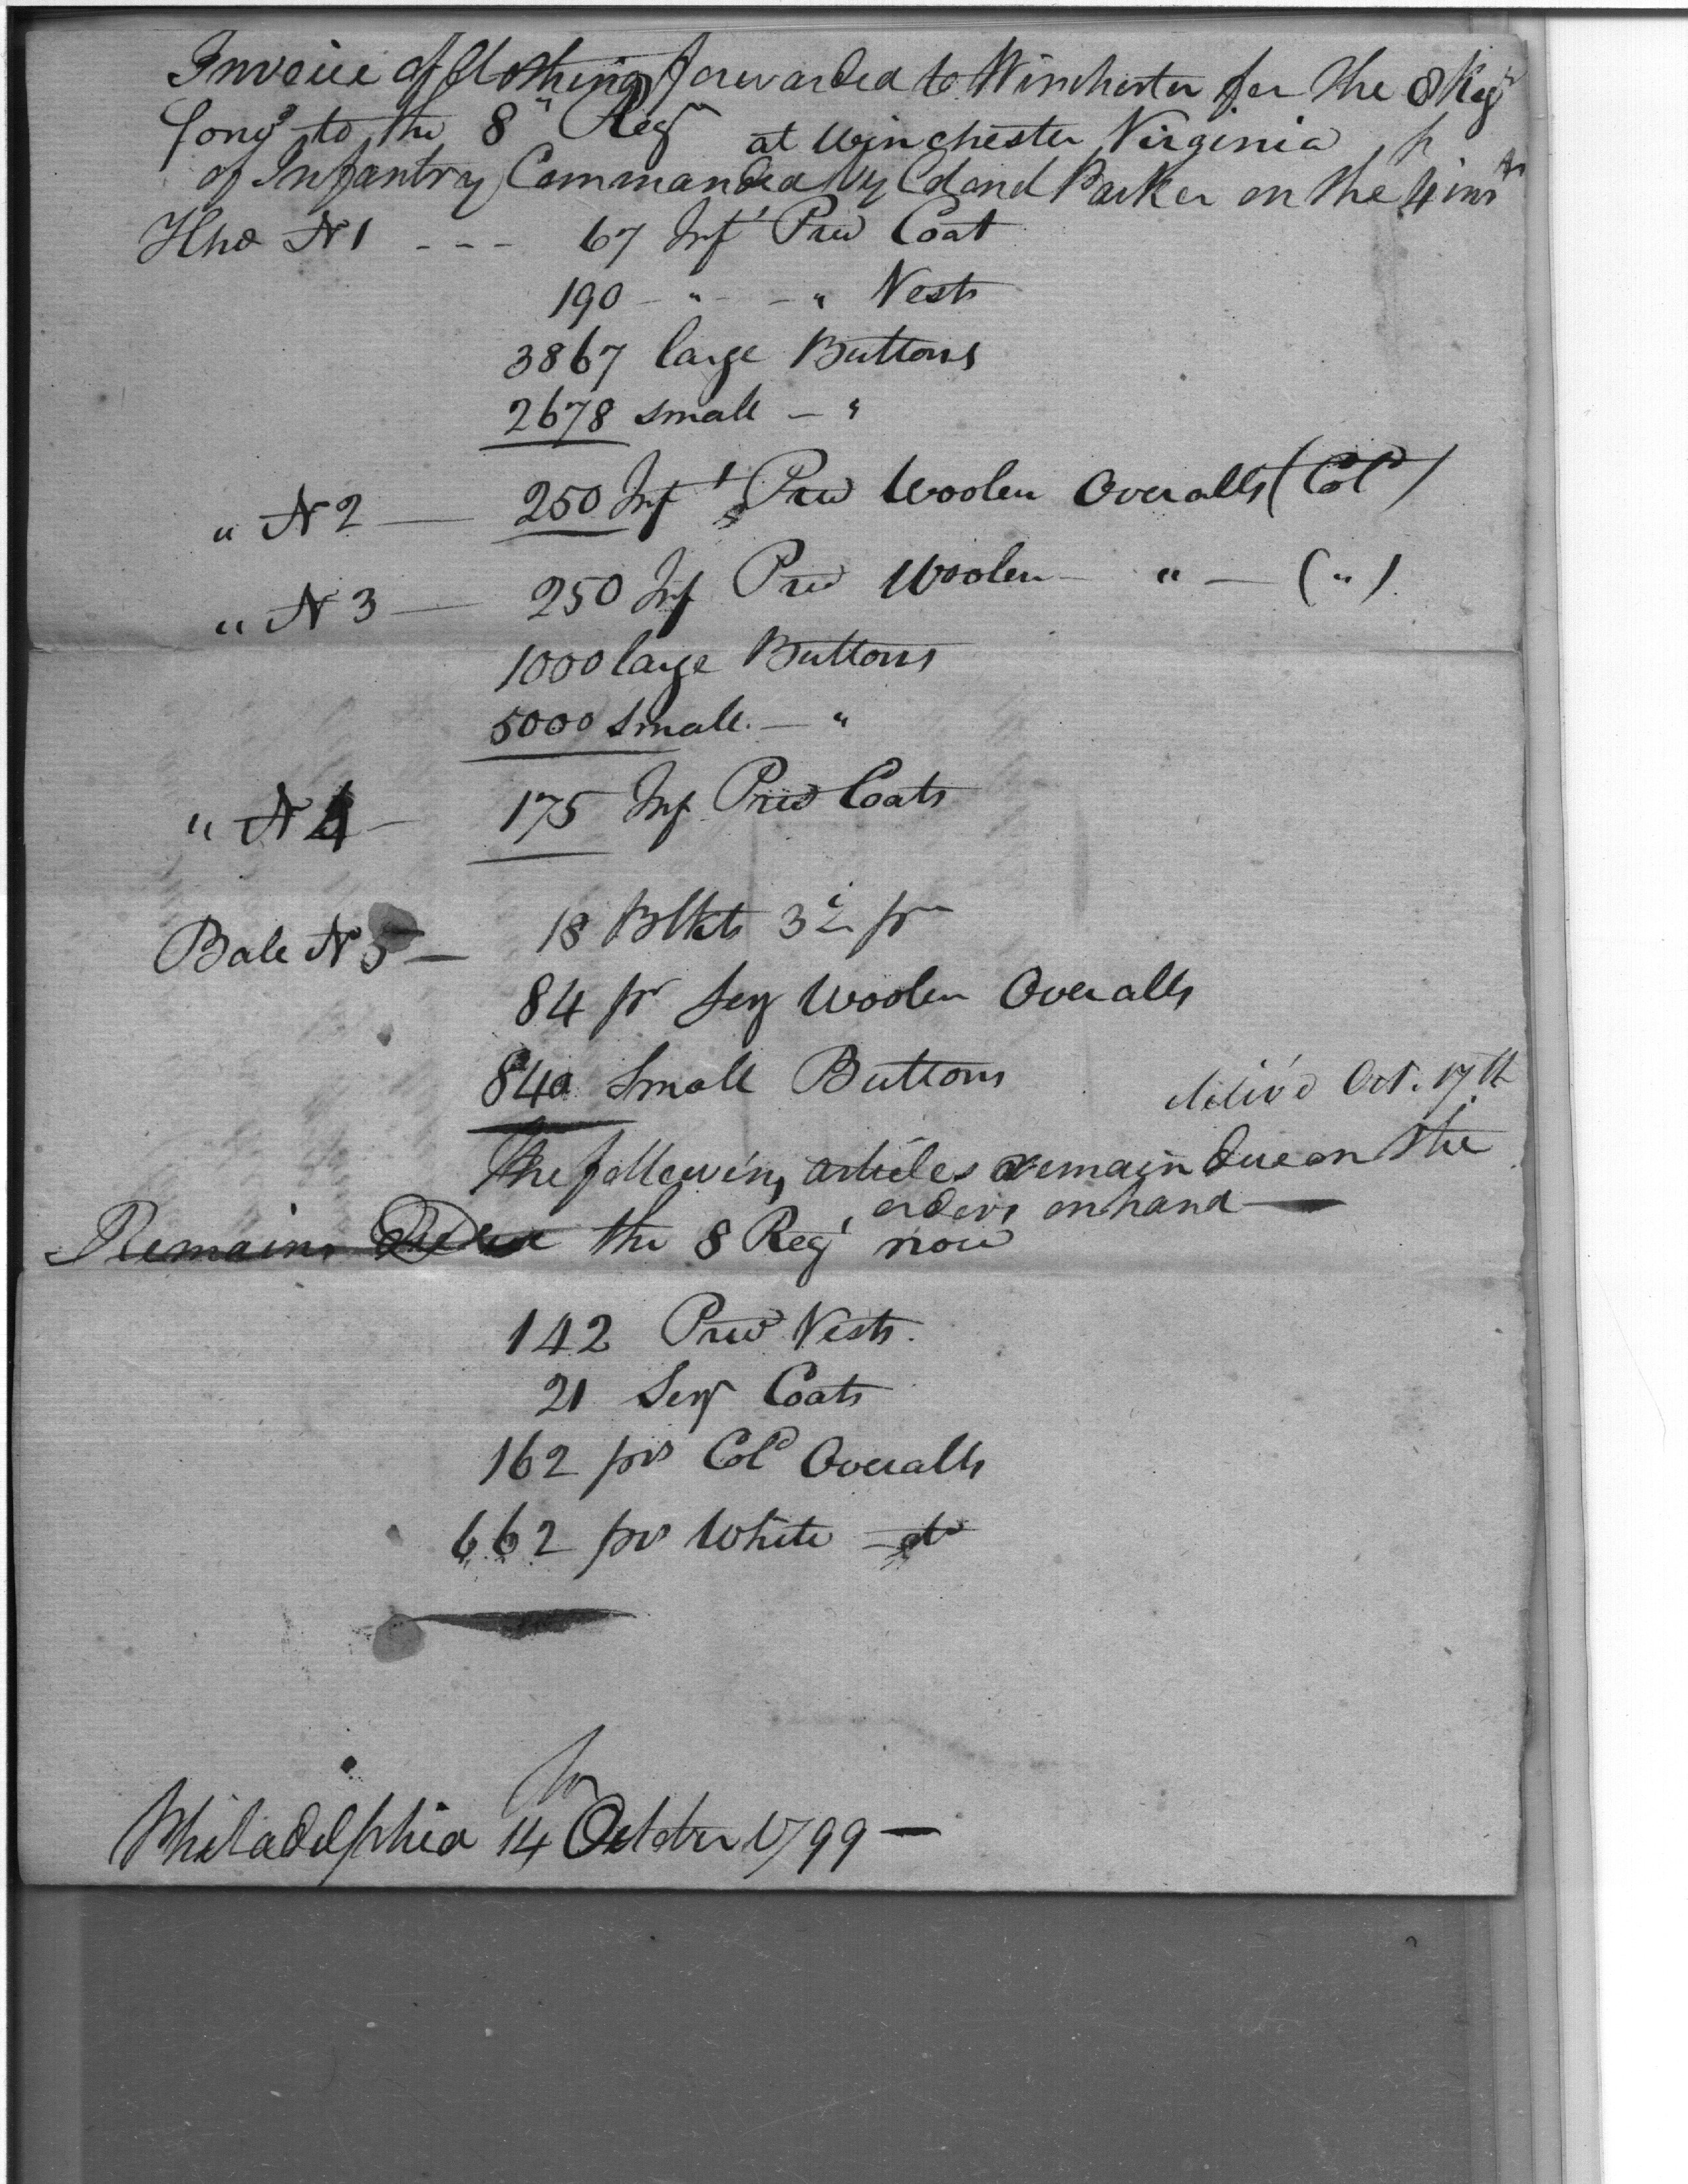 Invoice of Clothing forwarded to Winchester for the 8 Regt
to the 8th Regt at Winchester Virginia
of Infantry Commanded by Colonel Parker on the 4 inst
Hhd N 1 - - - 67 Inft Priv Coat
190 - " - - " Vests
3867 large Buttons
2678 small - "
" N 2 — 250 Inft Priv Woolen Overalls (Cold)
" N 3 — 250 Inf Priv Woolen - " — (")
1000 large Buttons
5000 Small. — "
" N 4 — 175 Inf. Priv Coats
Bale N 5 — 18 Blkts 3 pr
84 pr Serg Woolen Overalls
840 Small Buttons
deliv'd Oct. 17th
The following articles remain due on the
orders on hand —
Remains Due the 8 Regt now
142 Priv Vests.
21 Serg Coats
162 prs Cold Overalls
662 prs White do
Philadelphia 14 October 1799 —